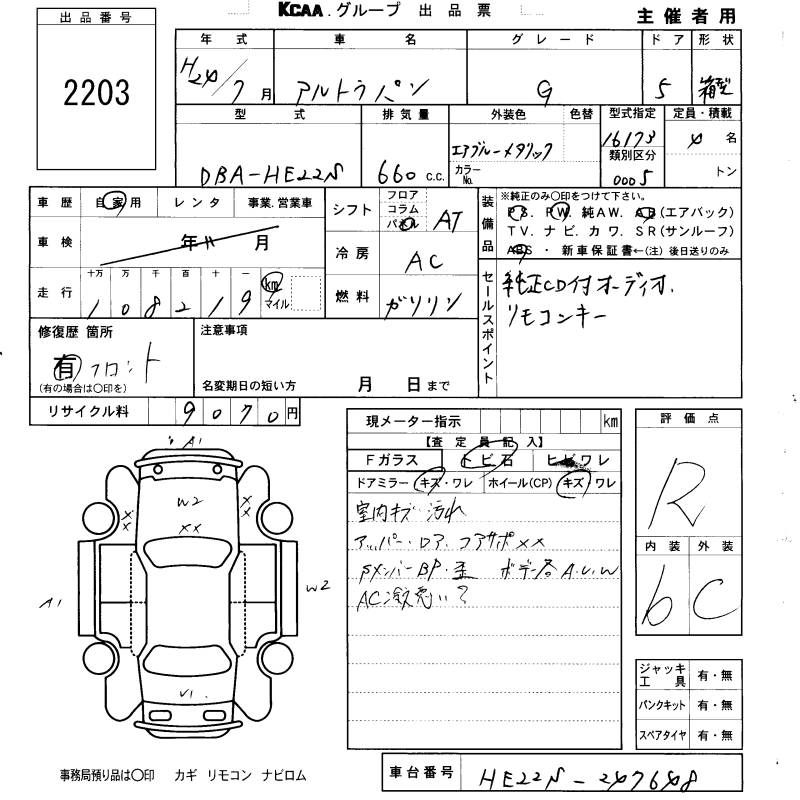 KCAA.グループ 出品票
主催者用
出品番号
2203
年式 車名 グレード ドア 形状
H24/7月 アルトラパン G 5 箱型
型式 排気量 外装色 色替 型式指定 定員・積載
DBA-HE22S 660 c.c. エアブルーメタリック 16173 4名
カラーNo. 類別区分 0005 トン
車歴 自家用 レンタ 事業.営業車
車検 年 月
走行 十万 万 千 百 十 一
108219 km マイル
シフト フロア コラム パネル AT
冷房 AC
燃料 ガソリン
装備品 ※純正のみ〇印をつけて下さい。
PS. PW. 純AW. AB(エアバック)
TV. ナビ. カワ. SR(サンルーフ)
ABS ・ 新車保証書←(注) 後日送りのみ
セールスポイント
純正CD付オーディオ.
リモコンキー
修復歴 箇所
有 フロント
(有の場合は〇印を)
注意事項
名変期日の短い方 月 日まで
リサイクル料 9070円
現メーター指示 km
【査定員記入】
Fガラス トビ石 ヒビワレ
ドアミラー キズ・ワレ ホイール(CP) キズ ワレ
室内キズ 汚れ
アッパー・ロア・コアサポXX
FメンバーBP・歪 ボデー各A.U.W
AC冷え悪い?
評価点
R
内装 外装
6 C
A1
W2
XX
XX
XX
A1
W2
U1
ジャッキ工具 有・無
パンクキット 有・無
スペアタイヤ 有・無
事務局預り品は〇印 カギ リモコン ナビロム
車台番号 HE22S-247648